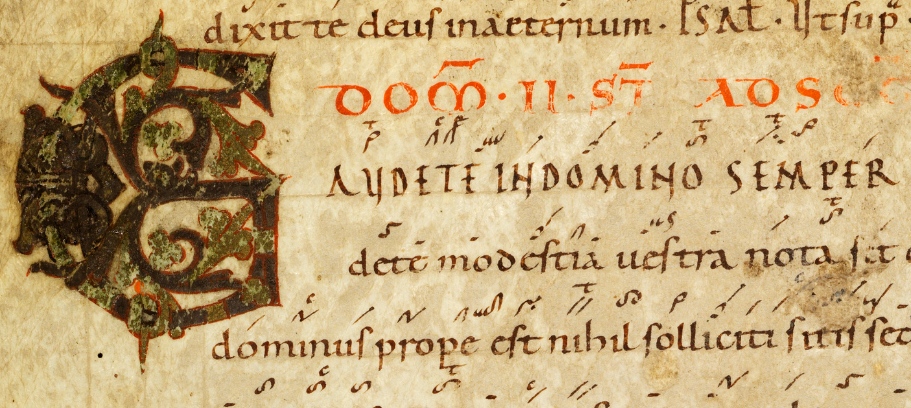 dixit te deus in aeternum · PSAL · Ut sup
DOM · II · ST AD S
GAUDETE IN DOMINO SEMPER
dete modestia vestra nota sit
dominus prope est nihil solliciti sitis sed